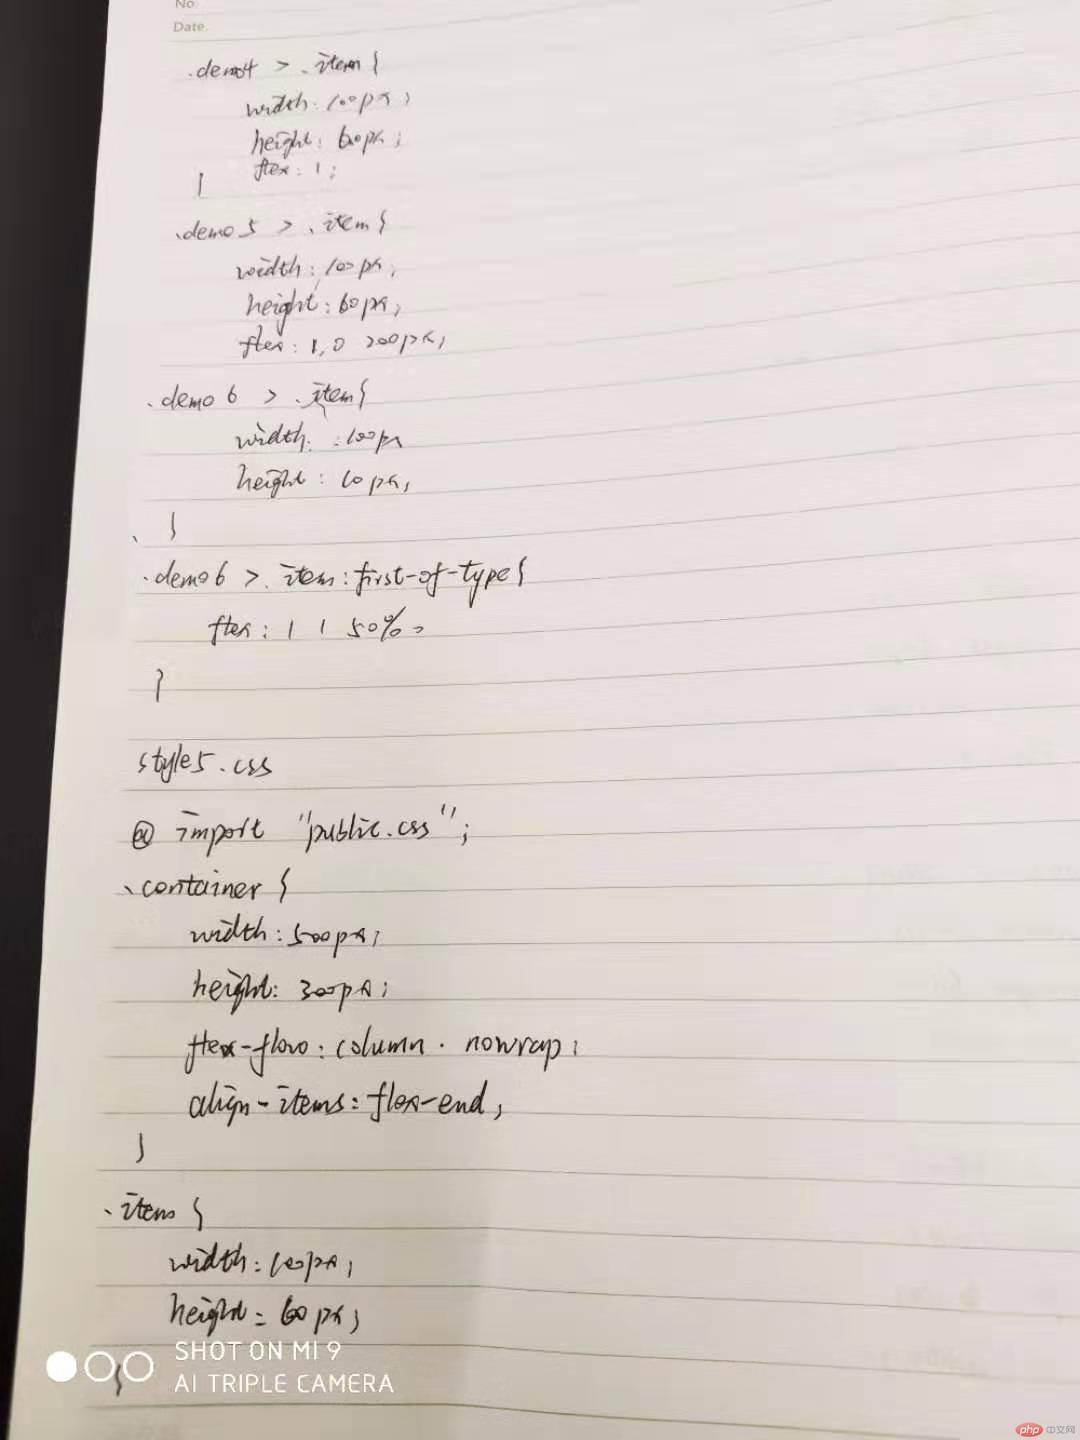 No.
Date.
.demo4 > .item {
width: 100px;
height: 60px;
flex: 1;
}
.demo5 > .item {
width: 100px;
height: 60px;
flex: 1,0 200px;
.demo6 > .item {
width: :100px
height: 10px;
}
.demo6 > .item:first-of-type {
flex: 1 1 50%;
}
style5.css
@ import "public.css";
.container {
width: 500px;
height: 300px;
flex-flow: column nowrap;
align-items: flex-end;
}
.item {
width: 100px;
height: 60px;
SHOT ON MI 9
AI TRIPLE CAMERA
}
php 中文网